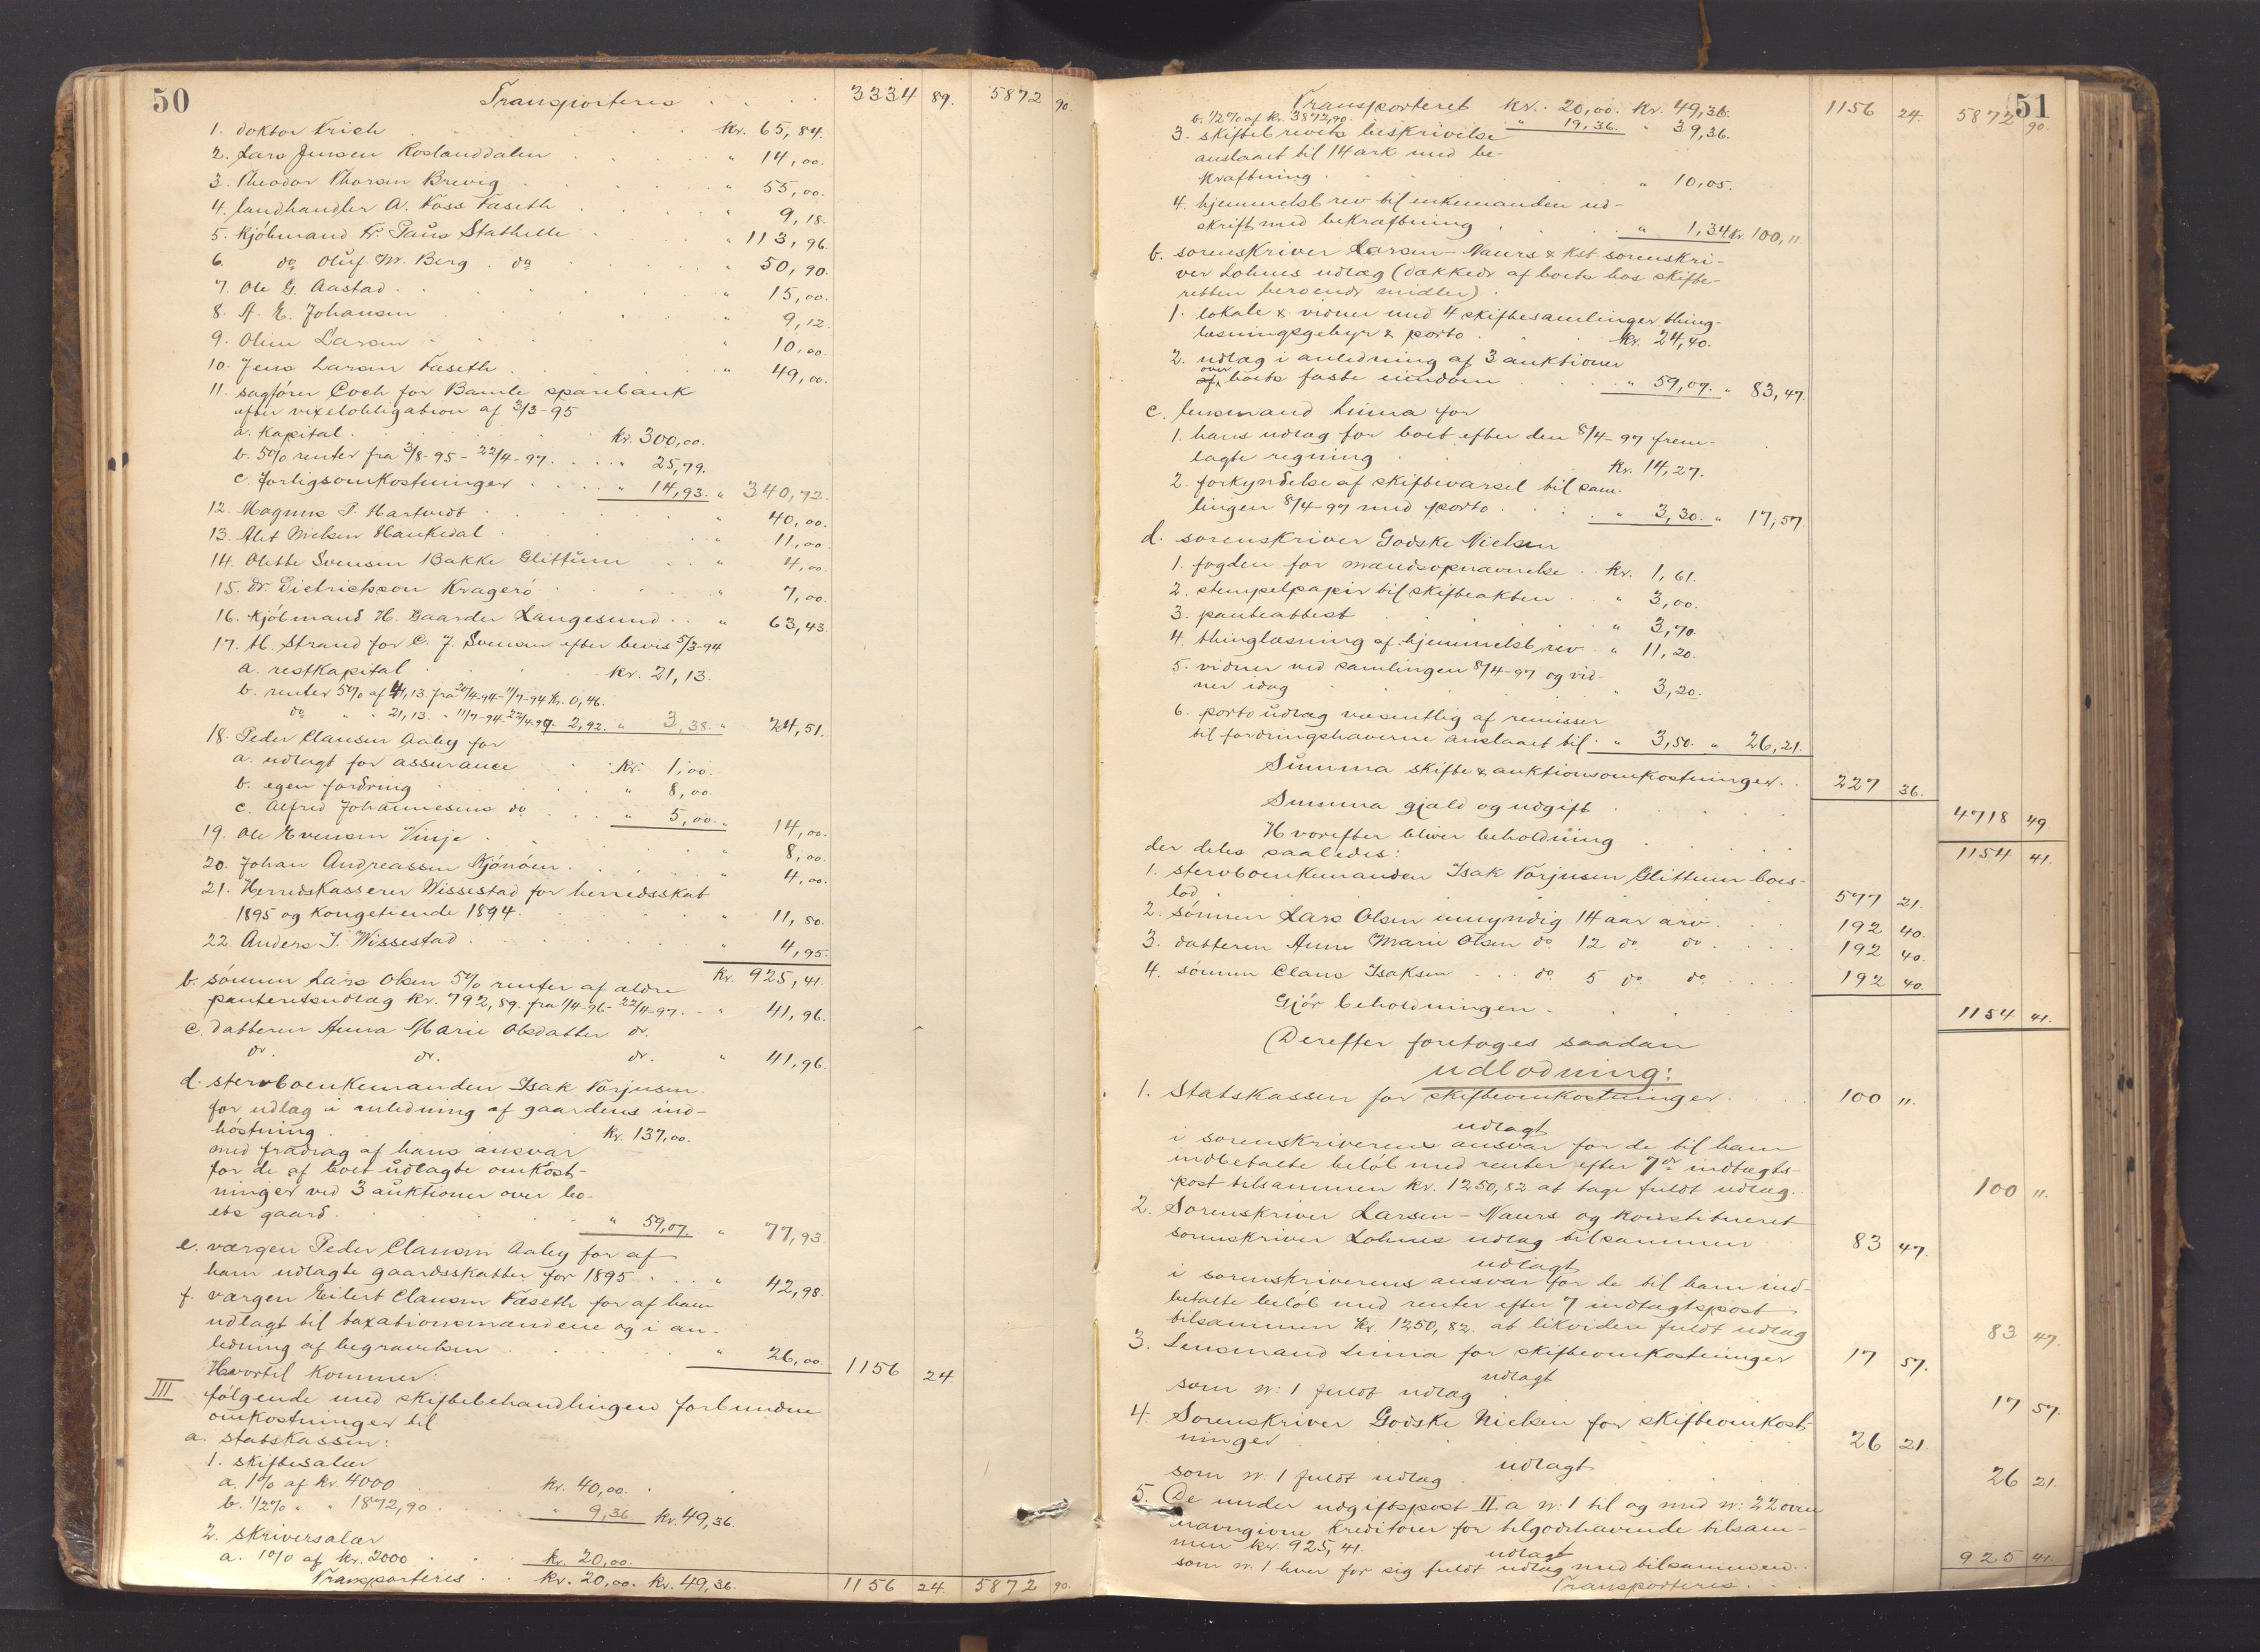 50
Transporteres . . . . 3334 89. 5872 90.
1. doktor Frich . . . kr. 65,84.
2. Lars Jensen Roslanddalen . . " 14,00.
3. Theodor Thorsen Brevig . . " 55,00.
4. landhandler A. Foss Faseth . . " 9,18.
5. kjöbmand Fr. Paus Stathelle . . " 113,96.
6. do Oluf M. Berg do . . " 50,90.
7. Ole G. Aastad . . " 15,00.
8. A. E. Johansen . . " 9,12.
9. Oline Larsen . . " 10,00.
10. Jens Larsen Faseth . . " 49,00.
11. sagförer Coch for Bamle sparebank
efter vexelobligation af 3/3-95
a. Kapital . . kr. 300,00.
b. 5% renter fra 3/8-95 - 22/4-97 . . " 25,79.
c. forligsomkostninger . . " 14,93. " 340,72.
12. Magnus P. Hartvedt . . " 40,00.
13. Alet Nielsen Haukedal . . " 11,00.
14. Olette Svensen Bakke Glittum . . " 4,00.
15. Dr. Dietrichson Kragerö . . " 7,00.
16. kjöbmand H. Gaarder Langesund . . " 63,43.
17. M. Strand for C. J. Svensen efter bevis 5/3-94
a. restkapital . kr. 21,13.
b. renter 5% af 41,13. fra 20/4-94-11/7-94 kr. 0,46.
do " " 21,13. " 11/7-94-22/4-97. 2,92. " 3,38. " 24,51.
18. Peder Clausen Aaby for
a. udlagt for assurance . . kr. 1,00.
b. egen fordring . . " 8,00.
c. Alfred Johannesens do . . " 5,00. " 14,00.
19. Ole Evensen Vinje . . " 8,00.
20. Johan Andreassen Njönöen . . " 4,00.
21. Herredskasserer Wissestad for herredsskat
1895 og Kongetiende 1894. . . " 11,80.
22. Anders I. Wissestad . . " 4,95.
kr. 925,41.
b. sönnen Lars Olsen 5% renter af ældre
panteretsudlæg kr. 792,89. fra 1/4-96-22/4-97. . " 41,96.
c. datteren Anna Marie Olsdatter do.
do. do. do. " 41,96.
d. stervboenkemanden Isak Torjusen
for udlæg i anledning af gaardens ind-
höstning . kr. 137,00.
med fradrag af hans ansvar
for de af boet udlagte omkost-
ninger ved 3 auktioner over bo-
ets gaard . . " 59,07. " 77,93.
e. værgen Peder Clausen Aaby for af
ham udlagte gaardsskatter for 1895 . . . " 42,98.
f. værgen Eilert Clausen Faseth for af ham
udlagt til taxationsmændene og i an-
ledning af begravelsen . . " 26,00. 1156 24.
Hvortil kommer:
III følgende med skiftebehandlingen forbundne
omkostninger til
a. statskassen:
1. skiftesalær
a. 1% af kr. 4000 kr. 40,00.
b. 1/2% " " 1872,90 . . " 9,36 kr. 49,36.
2. skriversalær
a. 1% af kr. 2000 . kr. 20,00.
Transporteres . . kr. 20,00. kr. 49,36. 1156 24. 5872 90.
51
Transporteret kr. 20,00. kr. 49,36. 1156 24. 5872 90.
b. 1/2% af kr. 3872,90. " 19,36. " 39,36.
3. skiftebrevets beskrivelse
anslaaet til 14 ark med be-
kræftning . . " 10,05.
4. hjemmelsbrev til enkemanden ud-
skrift med bekræftning . . " 1,34 kr. 100,"
b. sorenskriver Larsen-Naurs & kst. sorenskri-
ver Lohnes udlæg (dækkede af boets hos skifte-
retten beroende midler).
1. lokale & vidner med 4 skiftesamlinger thing-
læsningsgebyr & porto . . kr. 24,40.
2. udlæg i anledning af 3 auktioner
over
af boets faste eiendom . . " 59,07. " 83,47.
c. lensmand Linna for
1. hans udlæg for boet efter den 8/4-97 frem-
lagte regning . . kr. 14,27.
2. forkyndelse af skiftevarsel til sam-
lingen 8/4-97 med porto . . " 3,30. " 17,57.
d. sorenskriver Godske Nielsen
1. fogden for mandsopnævnelse . . kr. 1,61.
2. stempelpapir til skifteakten . . " 3,00.
3. panteattest . . " 3,70.
4. thinglæsning af hjemmelsbrev . " 11,20.
5. vidner ved samlingen 8/4-97 og vid-
ner idag . . " 3,20.
6. porto udlæg væsentlig af remisser
til fordringshaverne anslaaet til . " 3,50. " 26,21.
Summa skifte & auktionsomkostninger . . 227 36.
Summa gjæld og udgift . . . 4718 49
Hvorefter bliver beholdning . . . 1154 41.
der deles saaledes:
1. stervboenkemanden Isak Torjusen Glittum boes-
lod . . 577 21.
2. sönnen Lars Olsen umyndig 14 aar arv . . . 192 40.
3. datteren Anne Marie Olsen do 12 do do . . . . 192 40.
4. sönnen Claus Isaksen . . . do 5 do do . . . . 192 40.
Gjör beholdningen . . . 1154 41.
Derefter foretages saadan
udlodning:
1. Statskassen for skifteomkostninger . . . 100 ".
udlagt
i sorenskriverens ansvar for de til ham
indbetalte belöb med renter efter 7de indtægts-
post tilsammen kr. 1250,82 at tage fuldt udlæg. 100 ".
2. Sorenskriver Larsen-Naurs og konstitueret
sorenskriver Lohnes udlæg tilsammen 83 47.
udlagt
i sorenskriverens ansvar for de til ham ind-
betalte belöb med renter efter 7 indtægtspost
tilsammen kr. 1250,82. at likvidere fuldt udlæg 83 47.
3. Lensmand Linna for skifteomkostninger 17 57.
udlagt
som n: 1 fuldt udlæg . . 17 57.
4. Sorenskriver Godske Nielsen for skifteomkost-
ninger . . . 26 21.
udlagt
som n: 1 fuldt udlæg . . . 26 21.
5. De under udgiftspost II a n: 1 til og med n: 22 oven
navngivne kreditorer for tilgodehavende tilsam-
men kr. 925,41.
udlagt
som n: 1 hver for sig fuldt udlæg med tilsammen . . 925 41.
Transporteres . .